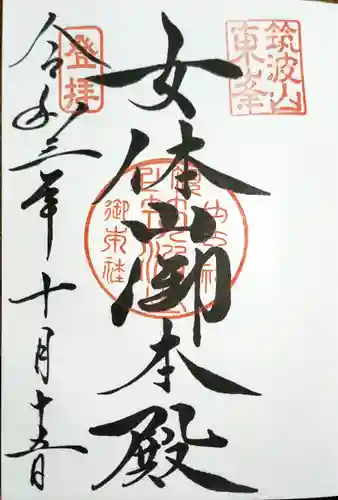 筑波山
東峯
女体山御本殿
登拝
令和三年十月十五日
御東社